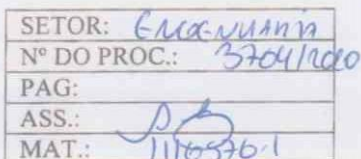 SETOR: Engenharia
Nº DO PROC.: 3704/2020
PAG:
ASS.:
MAT.: